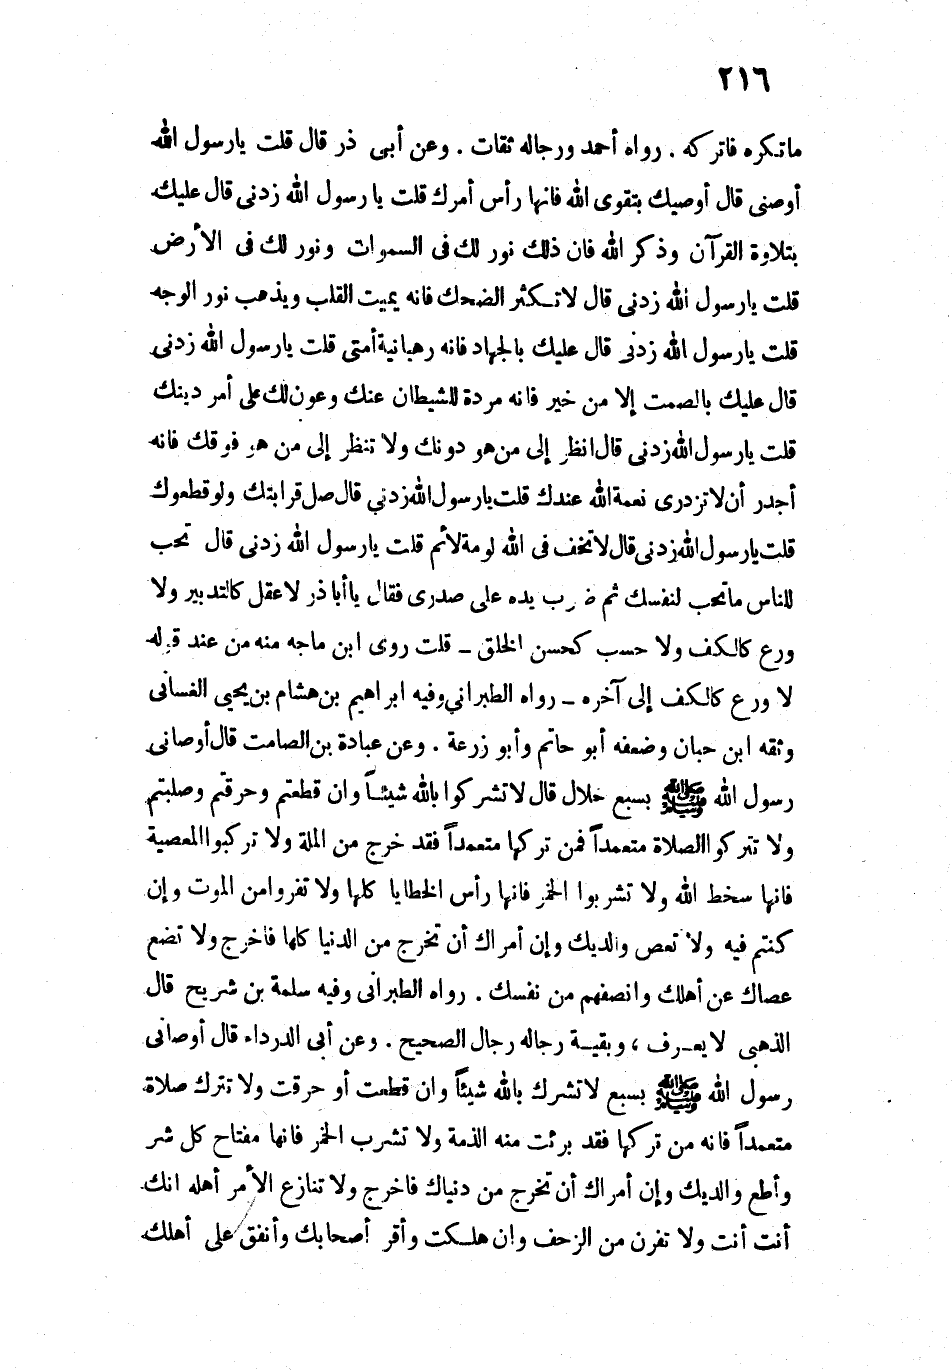 ٢١٦
ماتكره فاتركه . رواه أحمد ورجاله ثقات . وعن أبى ذر قال قلت يارسول الله
أوصنى قال أوصيك بتقوى الله فانها رأس أمرك قلت يا رسول الله زدنى قال عليك
بتلاوة القرآن وذكر الله فان ذلك نور لك فى السموات ونور لك فى الأرض
قلت يارسول الله زدنى قال لاتكثر الضحك فانه يميت القلب ويذهب نور الوجه
قلت يارسول الله زدنى قال عليك بالجهاد فانه رهبانية أمتى قلت يارسول الله زدنى
قال عليك بالصمت إلا من خير فانه مردة للشيطان عنك وعون لك على أمر دينك
قلت يارسول الله زدنى قال انظر إلى من هو دونك ولا تنظر إلى من هو فوقك فانه
أجدر أن لا تزدرى نعمة الله عندك قلت يارسول الله زدني قال صل قرابتك ولو قطعوك
قلت يارسول الله زدنى قال لا تخف فى الله لومة لائم قلت يارسول الله زدنى قال تحب
للناس ماتحب لنفسك ثم ضرب يده على صدرى فقال ياأبا ذر لا عقل كالتدبير ولا
ورع كالكف ولا حسب كحسن الخلق ـ قلت روى ابن ماجه منه من عند قوله
لا ورع كالكف إلى آخره ـ رواه الطبراني وفيه ابراهيم بن هشام بن يحيى الغسانى
وثقه ابن حبان وضعفه أبو حاتم وأبو زرعة . وعن عبادة بن الصامت قال أوصانى
رسول الله ﷺ بسبع خلال قال لا تشركوا بالله شيئاً وان قطعتم وحرقتم وصلبتم
ولا تتركوا الصلاة متعمداً فمن تركها متعمداً فقد خرج من الملة ولا تركبوا المعصية
فانها سخط الله ولا تشربوا الخمر فانها رأس الخطايا كلها ولا تفروا من الموت وإن
كنتم فيه ولا تعص والديك وإن أمراك أن تخرج من الدنيا كلها فاخرج ولا تضع
عصاك عن أهلك وانصفهم من نفسك . رواه الطبرانى وفيه سلمة بن شريح قال
الذهبى لا يعرف ، وبقية رجاله رجال الصحيح . وعن أبى الدرداء قال أوصانى
رسول الله ﷺ بسبع لا تشرك بالله شيئاً وان قطعت أو حرقت ولا تترك صلاة
متعمداً فانه من تركها فقد برئت منه الذمة ولا تشرب الخمر فانها مفتاح كل شر
وأطع والديك وإن أمراك أن تخرج من دنياك فاخرج ولا تنازع الأمر أهله انك
أنت أنت ولا تفرن من الزحف وان هلكت وأقر أصحابك وأنفق على أهلك